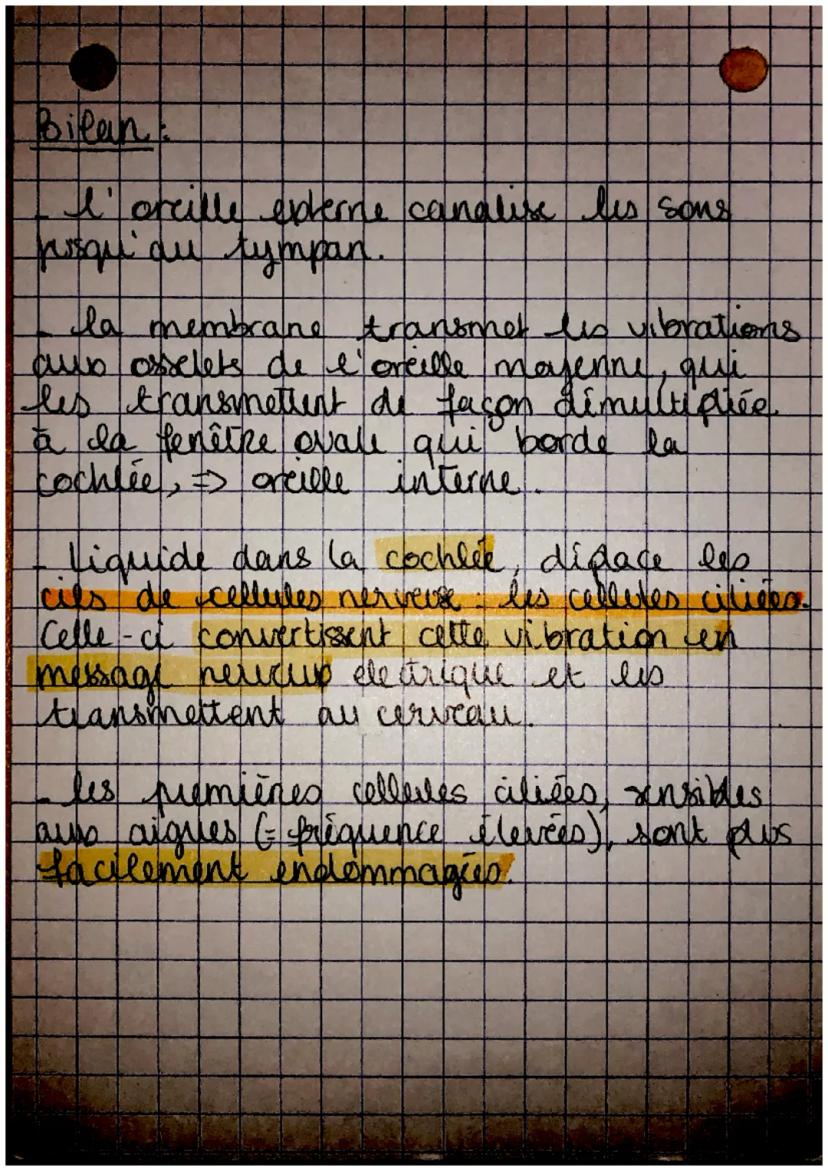 Bilan :
- l'oreille externe canalise les sons
jusqu'au tympan.
- la membrane transmet les vibrations
aux osselets de l'oreille moyenne, qui
les transmettent de façon démultipliée
à la fenêtre ovale qui borde la
cochlée, => oreille interne.
- liquide dans la cochlée, déplace les
cils de cellules nerveuse : les cellules ciliées.
Celle-ci convertissent cette vibration en
message nerveux electrique et les
transmettent au cerveau.
- les premières cellules ciliées, sensibles
aux aigues (= fréquence élevées), sont plus
facilement endommagées.